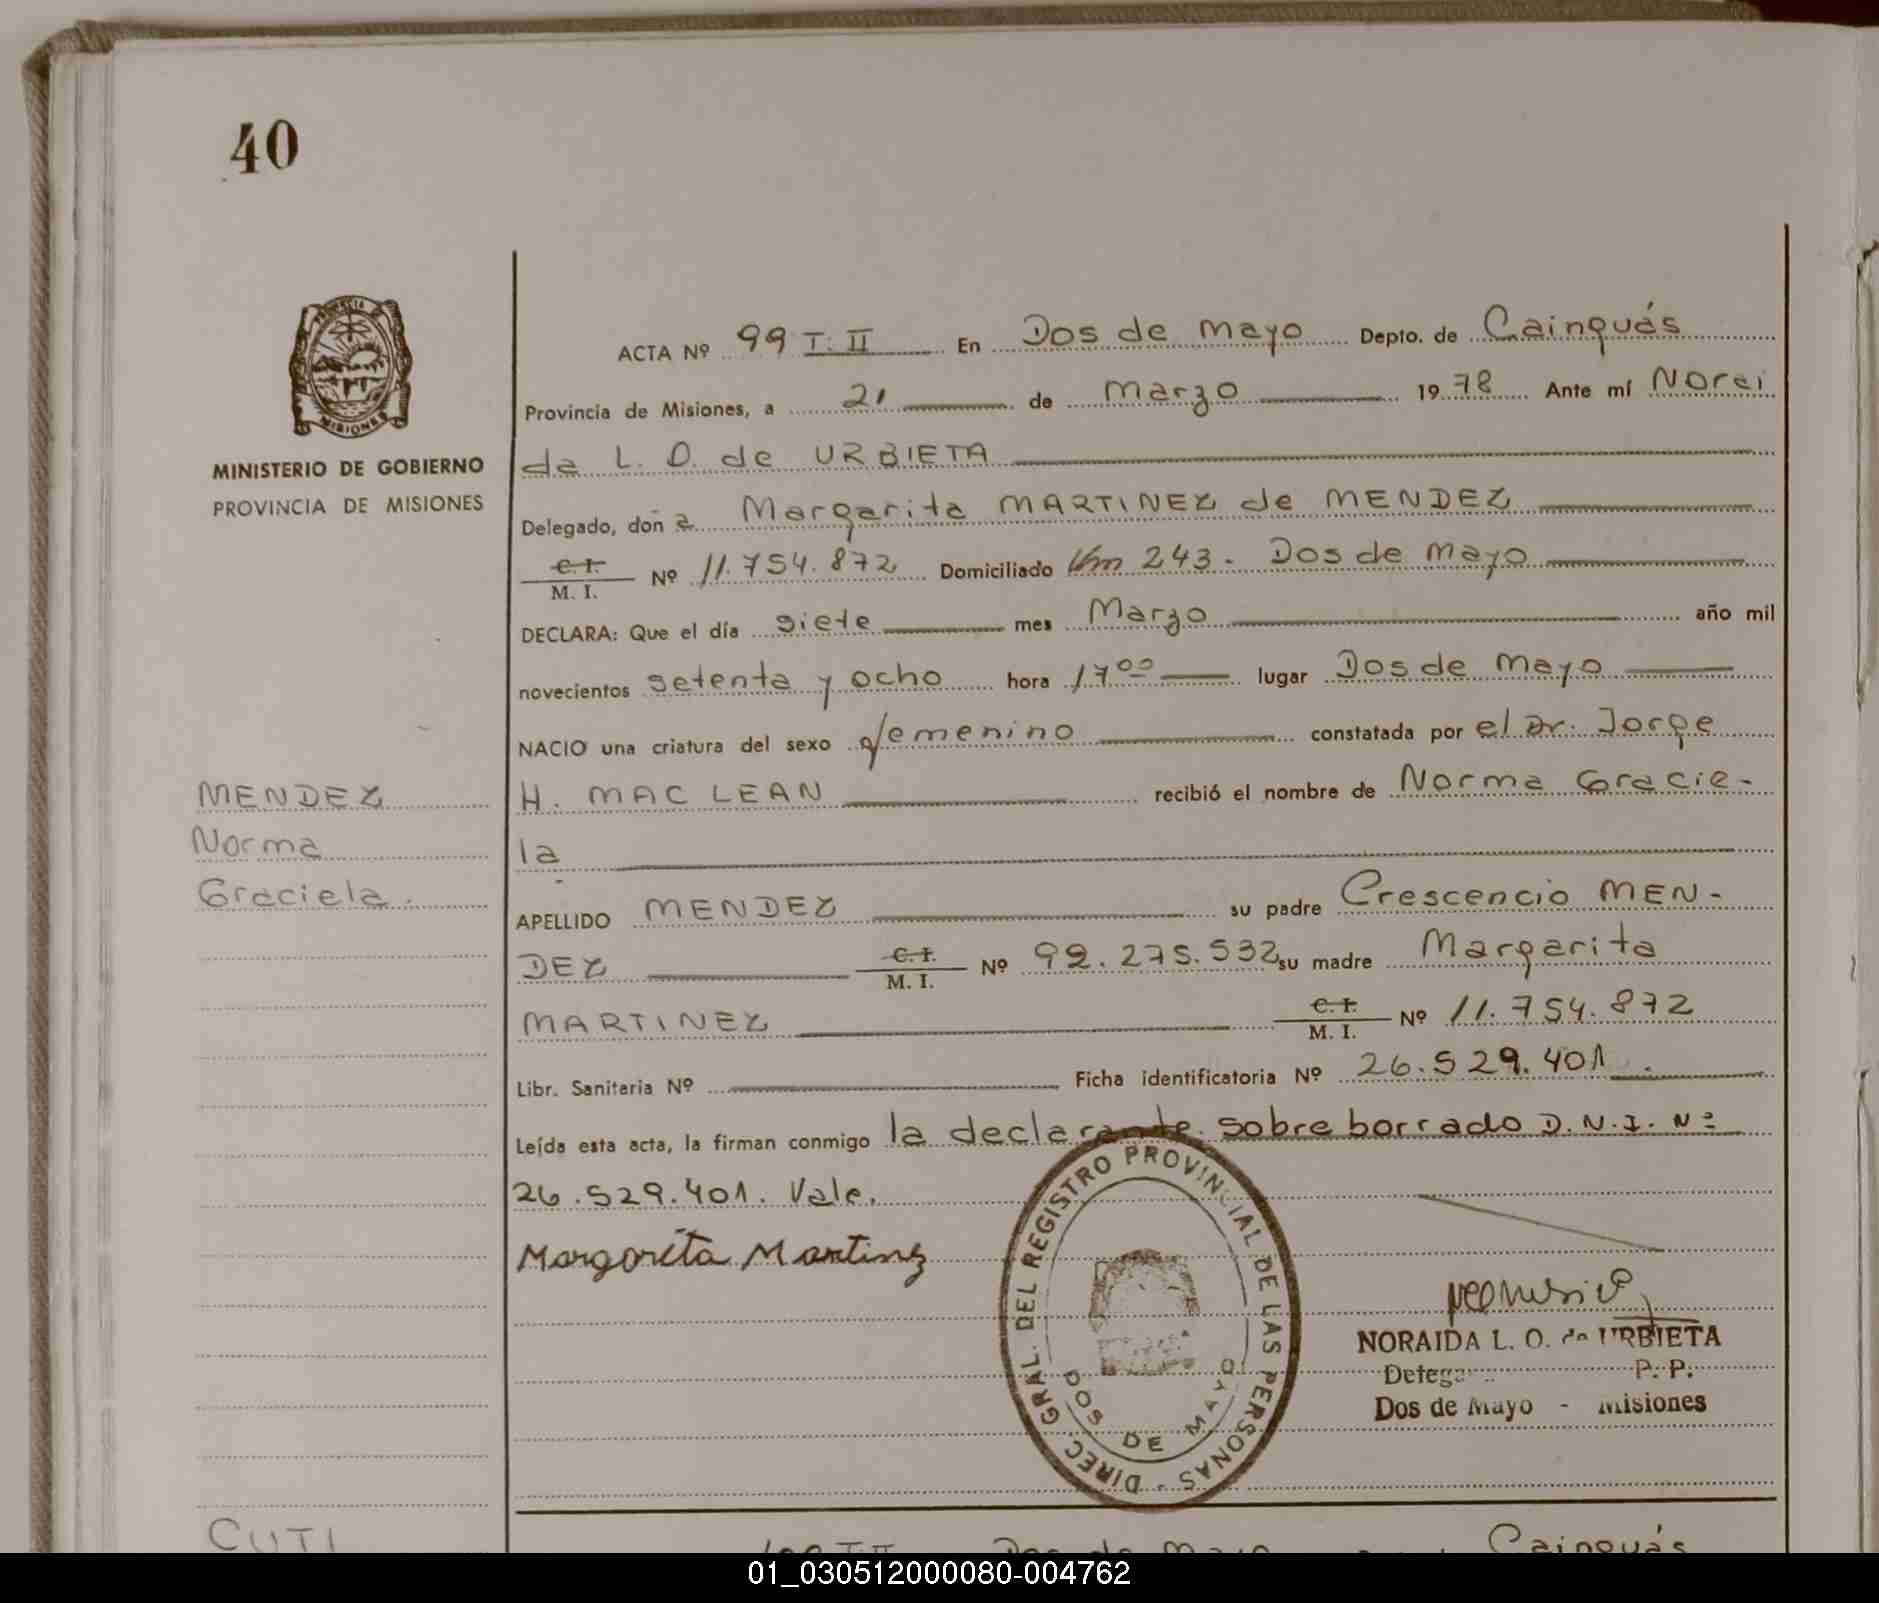 40
PROVINCIA
MISIONES
MINISTERIO DE GOBIERNO
PROVINCIA DE MISIONES
ACTA Nº 99 T. II En Dos de Mayo Depto. de Cainguás
Provincia de Misiones, a 21 de Marzo 1978 Ante mí Norai
da L. O. de URBIETA
Delegado, don a Margarita MARTINEZ de MENDEZ
C. I.
M. I. Nº 11.754.872 Domiciliado Km 243. Dos de Mayo
DECLARA: Que el día siete mes Marzo año mil
novecientos setenta y ocho hora 17ºº lugar Dos de Mayo
NACIO una criatura del sexo femenino constatada por el Dr. Jorge
H. MAC LEAN recibió el nombre de Norma Gracie-
la
MENDEZ
Norma
Graciela.
APELLIDO MENDEZ su padre Crescencio MEN-
DEZ C. I. M. I. Nº 92.275.532 su madre Margarita
MARTINEZ C. I. M. I. Nº 11.754.872
Libr. Sanitaria Nº Ficha identificatoria Nº 26.529.401.
Leída esta acta, la firman conmigo la declarante. sobre borrado D.N.I. Nº
26.529.401. Vale.
Margarita Martinez
DIREC. GRAL. DEL REGISTRO PROVINCIAL DE LAS PERSONAS -
DOS DE MAYO
NORAIDA L. O. de URBIETA
P. P.
Dos de Mayo - Misiones
CUTI
100 T. II Dos de Mayo Cainguás
01_030512000080-004762